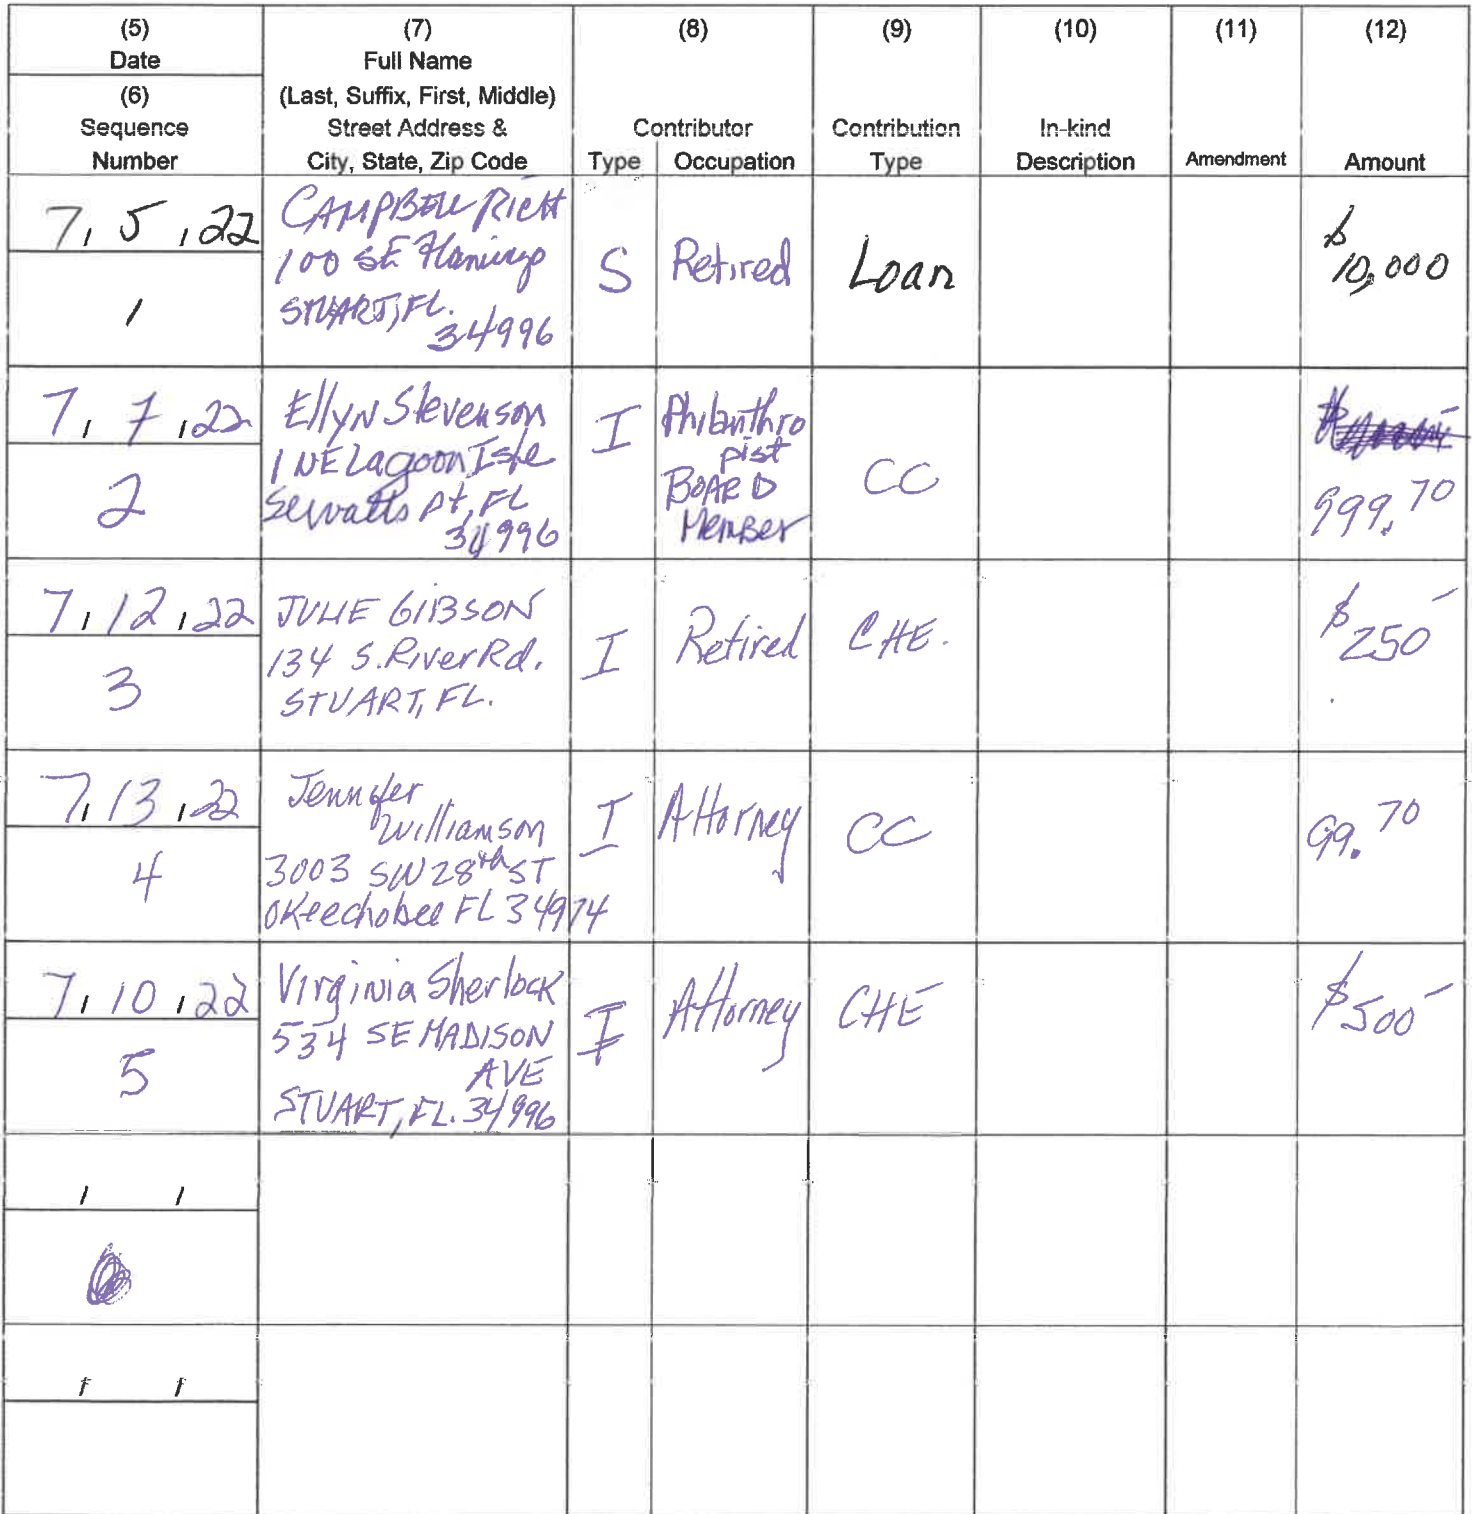 (5) (7) (8) (9) (10) (11) (12)
Date Full Name
(6) (Last, Suffix, First, Middle)
Sequence Street Address & Contributor Contribution In-kind
Number City, State, Zip Code Type Occupation Type Description Amendment Amount
7, 5, 22
1
CAMPBELL RICH
100 SE Flamingo
STUART, FL.
34996
S
Retired
Loan
$
10,000
7, 7, 22
2
Ellyn Stevenson
1 NE Lagoon Isle
Sewalls Pt, FL
34996
I
Philanthro
pist
BOARD
Member
CC
999.70
7, 12, 22
3
JULIE GIBSON
134 S. River Rd.
STUART, FL.
I
Retired
CHE.
$250
7, 13, 22
4
Jennifer
Williamson
3003 SW 28th ST
Okeechobee FL 34974
I
Attorney
CC
99.70
7, 10, 22
5
Virginia Sherlock
534 SE MADISON
AVE
STUART, FL. 34996
I
Attorney
CHE
$500